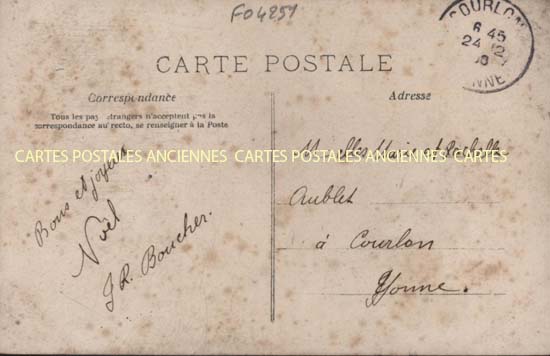 F04251
COURLON
6 45
24 12
YONNE
CARTE POSTALE
Correspondance
Tous les pays étrangers n'acceptent pas la
correspondance au recto, se renseigner à la Poste
Adresse
CARTES POSTALES ANCIENNES CARTES POSTALES ANCIENNES CARTES
Bons et joyeux
Noël
J R. Boucher.
Melles Marie et
Aublet
à Courlon
Yonne.